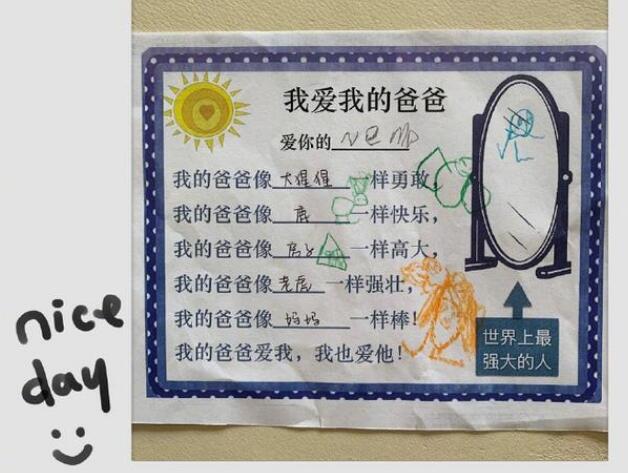 我爱我的爸爸
爱你的
我的爸爸像大猩猩一样勇敢，
我的爸爸像鹿一样快乐，
我的爸爸像房子一样高大，
我的爸爸像老虎一样强壮，
我的爸爸像妈妈一样棒！
我的爸爸爱我，我也爱他！
世界上最
强大的人
nice
day